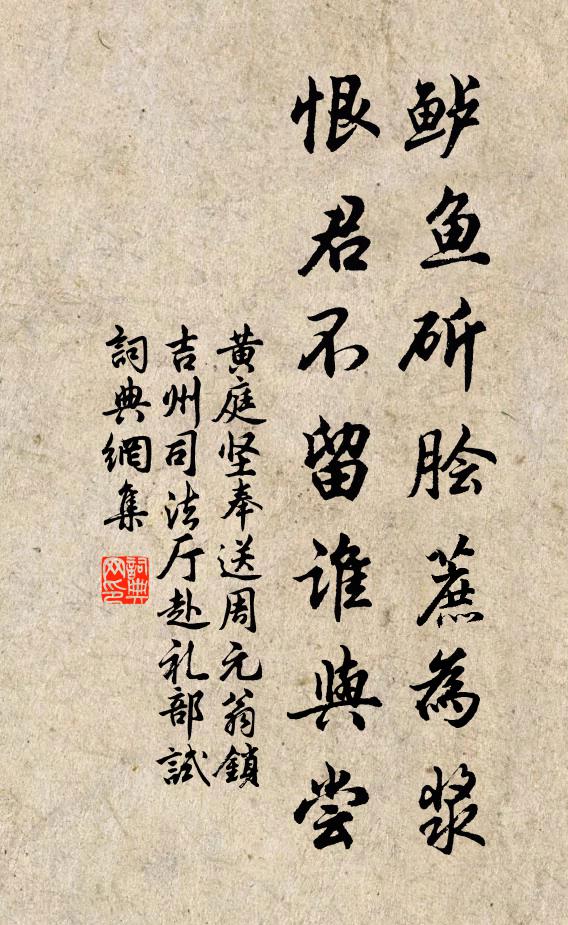 鲈鱼斫脍蔗為漿
恨君不留谁與尝
黄庭坚奉送周元翁鎖
吉州司法厅赴礼部試
詞典網集
詞典
网印